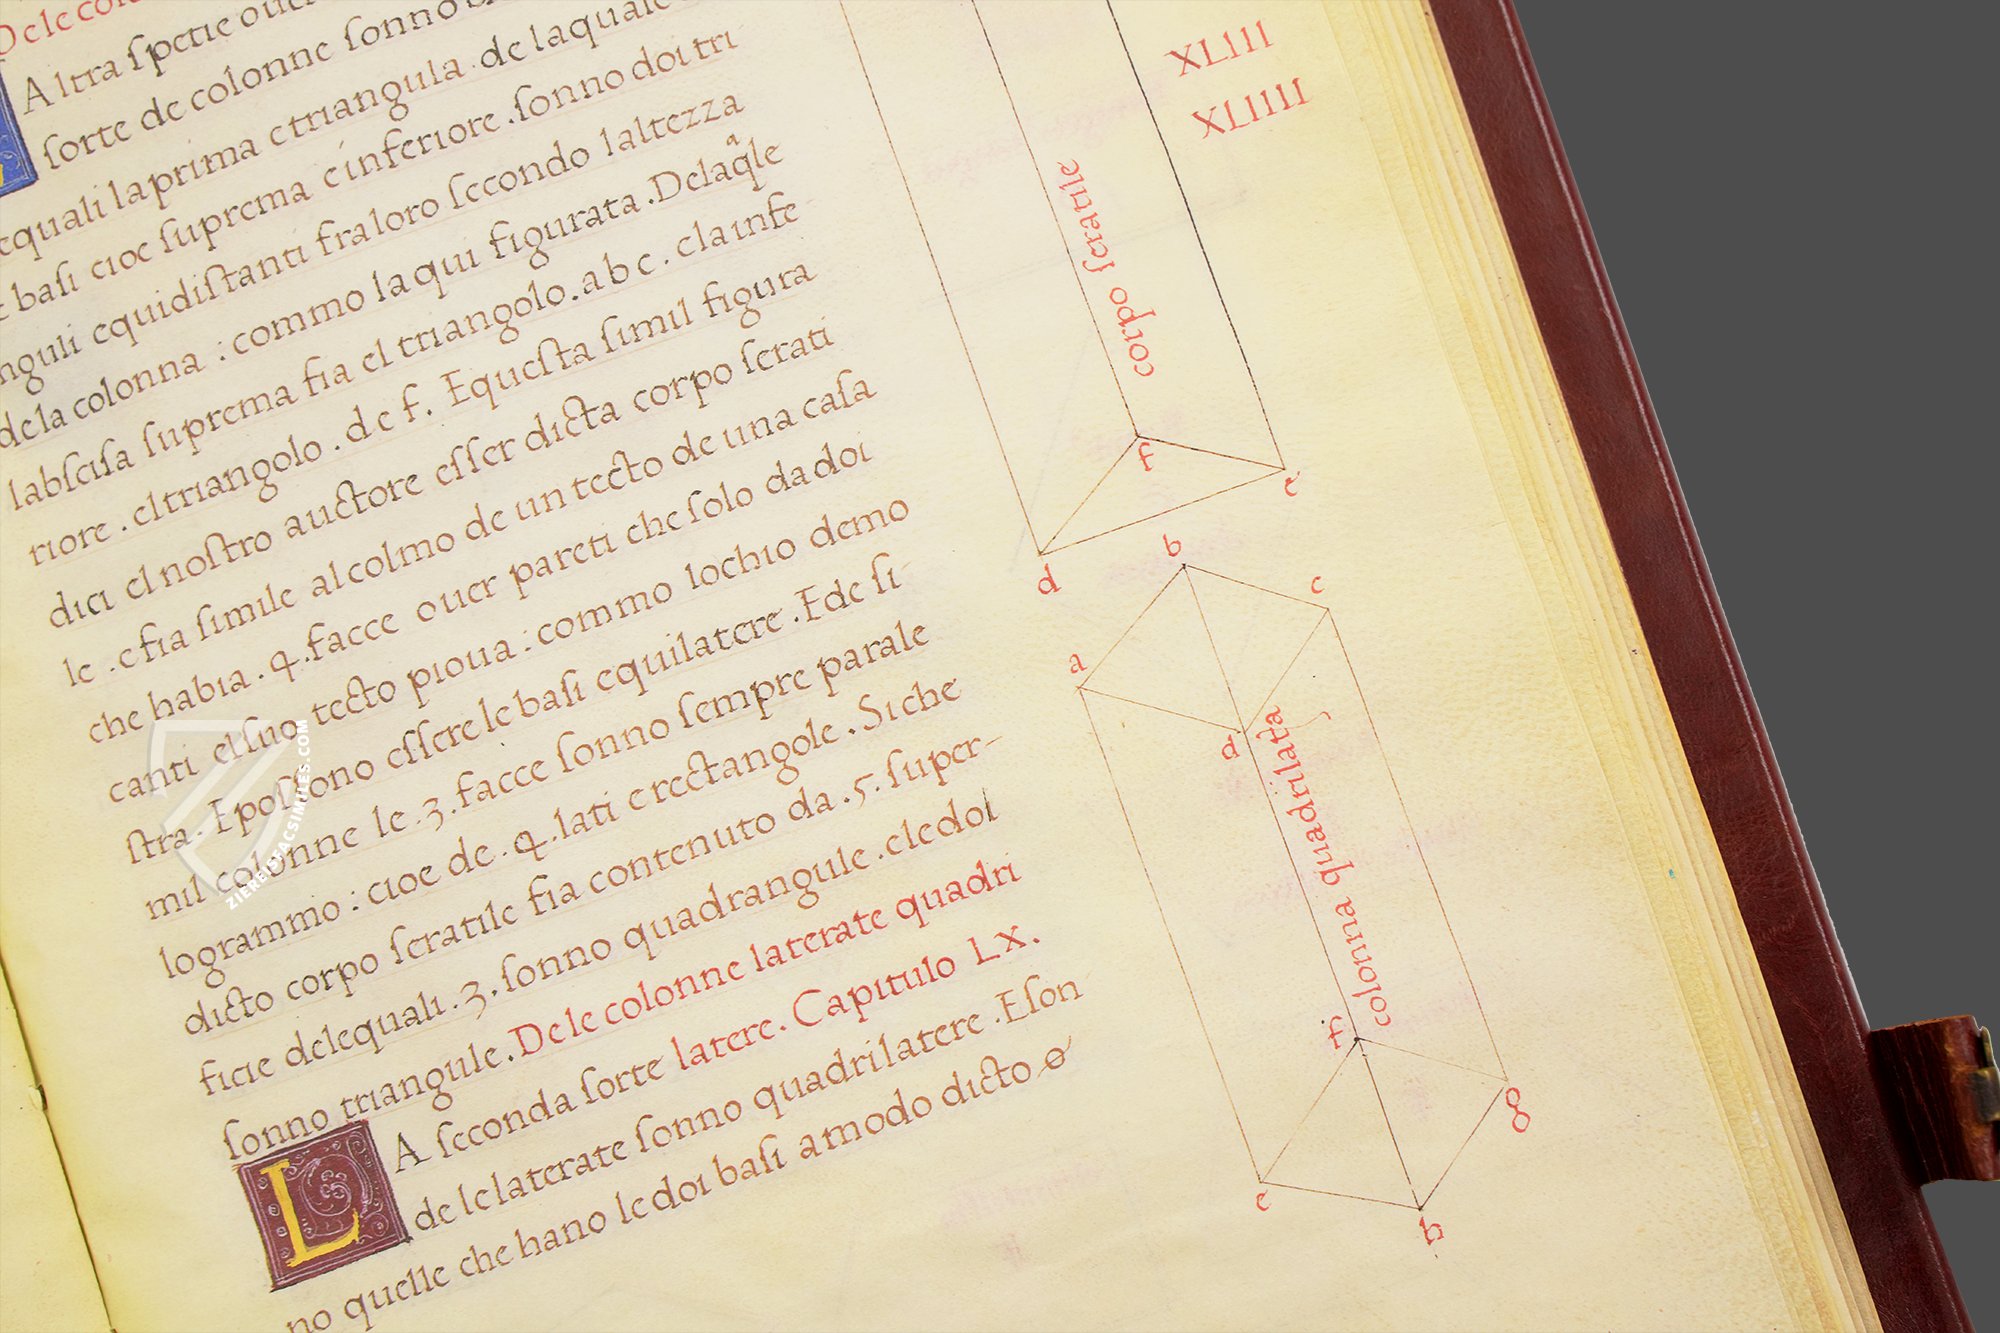 De le co
Altra ſpetie ouer
ſorte de colonne ſonno
equali la prima e triangula de laquale
baſi cioe ſuprema e inferiore . ſonno doi tri
nguli equidiſtanti fra loro ſecondo laltezza
dela colonna : commo la qui figurata . Delaq̃le
labſciſa ſuprema fia el triangolo . a b c . e la infe
riore . el triangolo . d e f . E queſta ſimil figura
dici el noſtro auctore eſſer dicta corpo ſerati
le . e fia ſimile al colmo de un tecto de una caſa
che habia . 4 . facce ouer pareti che ſolo da doi
canti el ſuo tecto pioua : commo lochio demo
ſtra . E poſſono eſſere le baſi equilatere . E de ſi
mil colonne le . 3 . facce ſonno ſempre parale
logrammo : cioe de . 4 . lati e rectangole . Si che
dicto corpo ſeratile fia contenuto da . 5 . ſuper-
ficie delequali . 3 . ſonno quadrangule . e le doi
ſonno triangule . De le colonne laterate quadri
latere . Capitulo Lx .
LA ſeconda ſorte
de le laterate ſonno quadrilatere . E ſon
no quelle che hano le doi baſi a modo dicto
XLIII
XLIIII
corpo ſeratile
f
e
d
b
c
a
d
colonna quadrilata
f
g
e
h
ZIEREIS FACSIMILES.COM